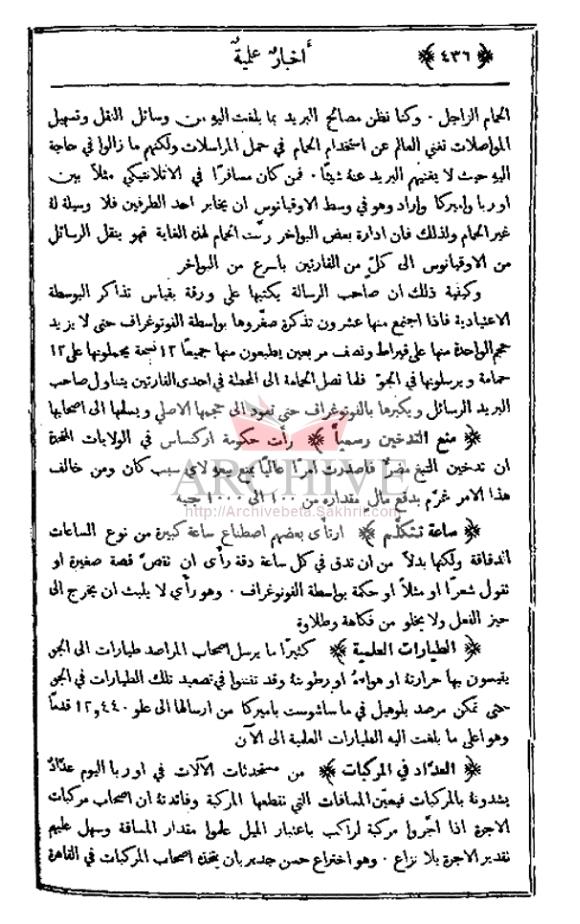 ﴿٤٣٦﴾ أخبارٌ علميةٌ
الحمام الزاجل · وكنا نظن مصالح البريد بما بلغت اليهِ من وسائل النقل وتسهيل
المواصلات تغني العالم عن استخدام الحمام في حمل المراسلات ولكنهم ما زالوا في حاجة
اليهِ حيث لا يغنيهم البريد عنهُ شيئًا · فمن كان مسافرًا في الاتلانتيكي مثلاً بين
اوربا واميركا واراد وهو في وسط الاوقيانوس ان يخابر احد الطرفين فلا وسيلة لهُ
غير الحمام ولذلك فان ادارة بعض البواخر ربّت الحمام لهذه الغاية فهو ينقل الرسائل
من الاوقيانوس الى كلٍّ من القارتين باسرع من البواخر
وكيفية ذلك ان صاحب الرسالة يكتبها على ورقة بقياس تذاكر البوسطة
الاعتيادية فاذا اجتمع منها عشرون تذكرة صغّروها بواسطة الفوتوغراف حتى لا يزيد
حجم الواحدة منها على قيراط ونصف مربعين يطبعون منها جميعًا ١٢ نسخة يحملونها على ١٢
حمامة ويرسلونها في الجوّ فلما تصل الحمامة الى المحطة في احدى القارتين يتناول صاحب
البريد الرسائل ويكبرها بالفوتوغراف حتى تعود الى حجمها الاصلي ويسلمها الى اصحابها
﴿ منع التدخين رسمياً ﴾ رأَت حكومة اركنساس في الولايات المتحدة
ان تدخين التبغ مضرٌّ فاصدرت امرًا عاليًا بمنع بيعهِ لاي سبب كان ومن خالف
هذا الامر غرِّم بدفع مال مقداره من ١٠٠ الى ١٠٠٠ جنيه
ARCHIVE
http://Archivebeta.Sakhrit.com
﴿ ساعة تتكلَّم ﴾ ارتأَى بعضهم اصطناع ساعة كبيرة من نوع الساعات
الدقاقة ولكنها بدلاً من ان تدق في كل ساعة دقة رأَى ان تقصّ قصة صغيرة او
تقول شعرًا او مثلاً او حكمة بواسطة الفونوغراف · وهو رأي لا يلبث ان يخرج الى
حيز الفعل ولا يخلو من فكاهة وطلاوة
﴿ الطيارات العلمية ﴾ كثيرًا ما يرسل اصحاب المراصد طيارات الى الجو
يقيسون بها حرارتهُ او هواءهُ او رطوبتهُ وقد تفننوا في تصعيد تلك الطيارات في الجو
حتى تمكن مرصد بلوهيل في ماساشوست باميركا من ارسالها الى علو ١٢,٤٤٠ قدمًا
وهو اعلى ما بلغت اليه الطيارات العلمية الى الآن
﴿ العدّاد في المركبات ﴾ من مستحدثات الآلات في اوربا اليوم عدّادٌ
يشدونهُ بالمركبات فيعيّن المسافات التي تقطعها المركبة وفائدتهُ ان اصحاب مركبات
الاجرة اذا اجّروا مركبة لراكب باعتبار الميل علموا مقدار المسافة وسهل عليهم
تقدير الاجرة بلا نزاع · وهو اختراع حسن جدير بان يتخذهُ اصحاب المركبات في القاهرة